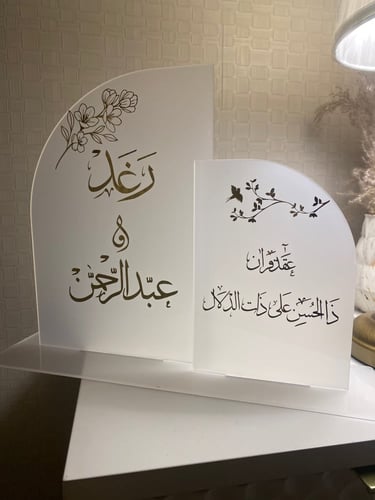 رَغَد
و
عبّد الرَّحمٰن
عَقدوان
ذَا الحُسنِ عَلى ذَات الدَلال